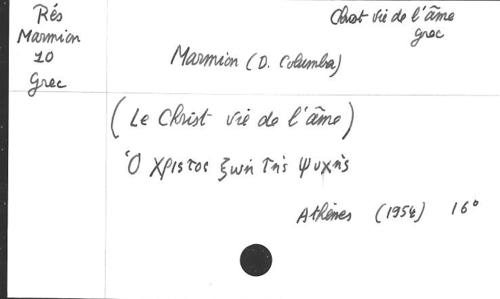 Rés
Marmion
10
Grec
Christ vie de l'âme
grec
Marmion (D. Columba)
(Le Christ vie de l'âme)
Ὁ Χριστος ξωή τη̃ς ψυχη̃ς
Athènes (1954) 16°